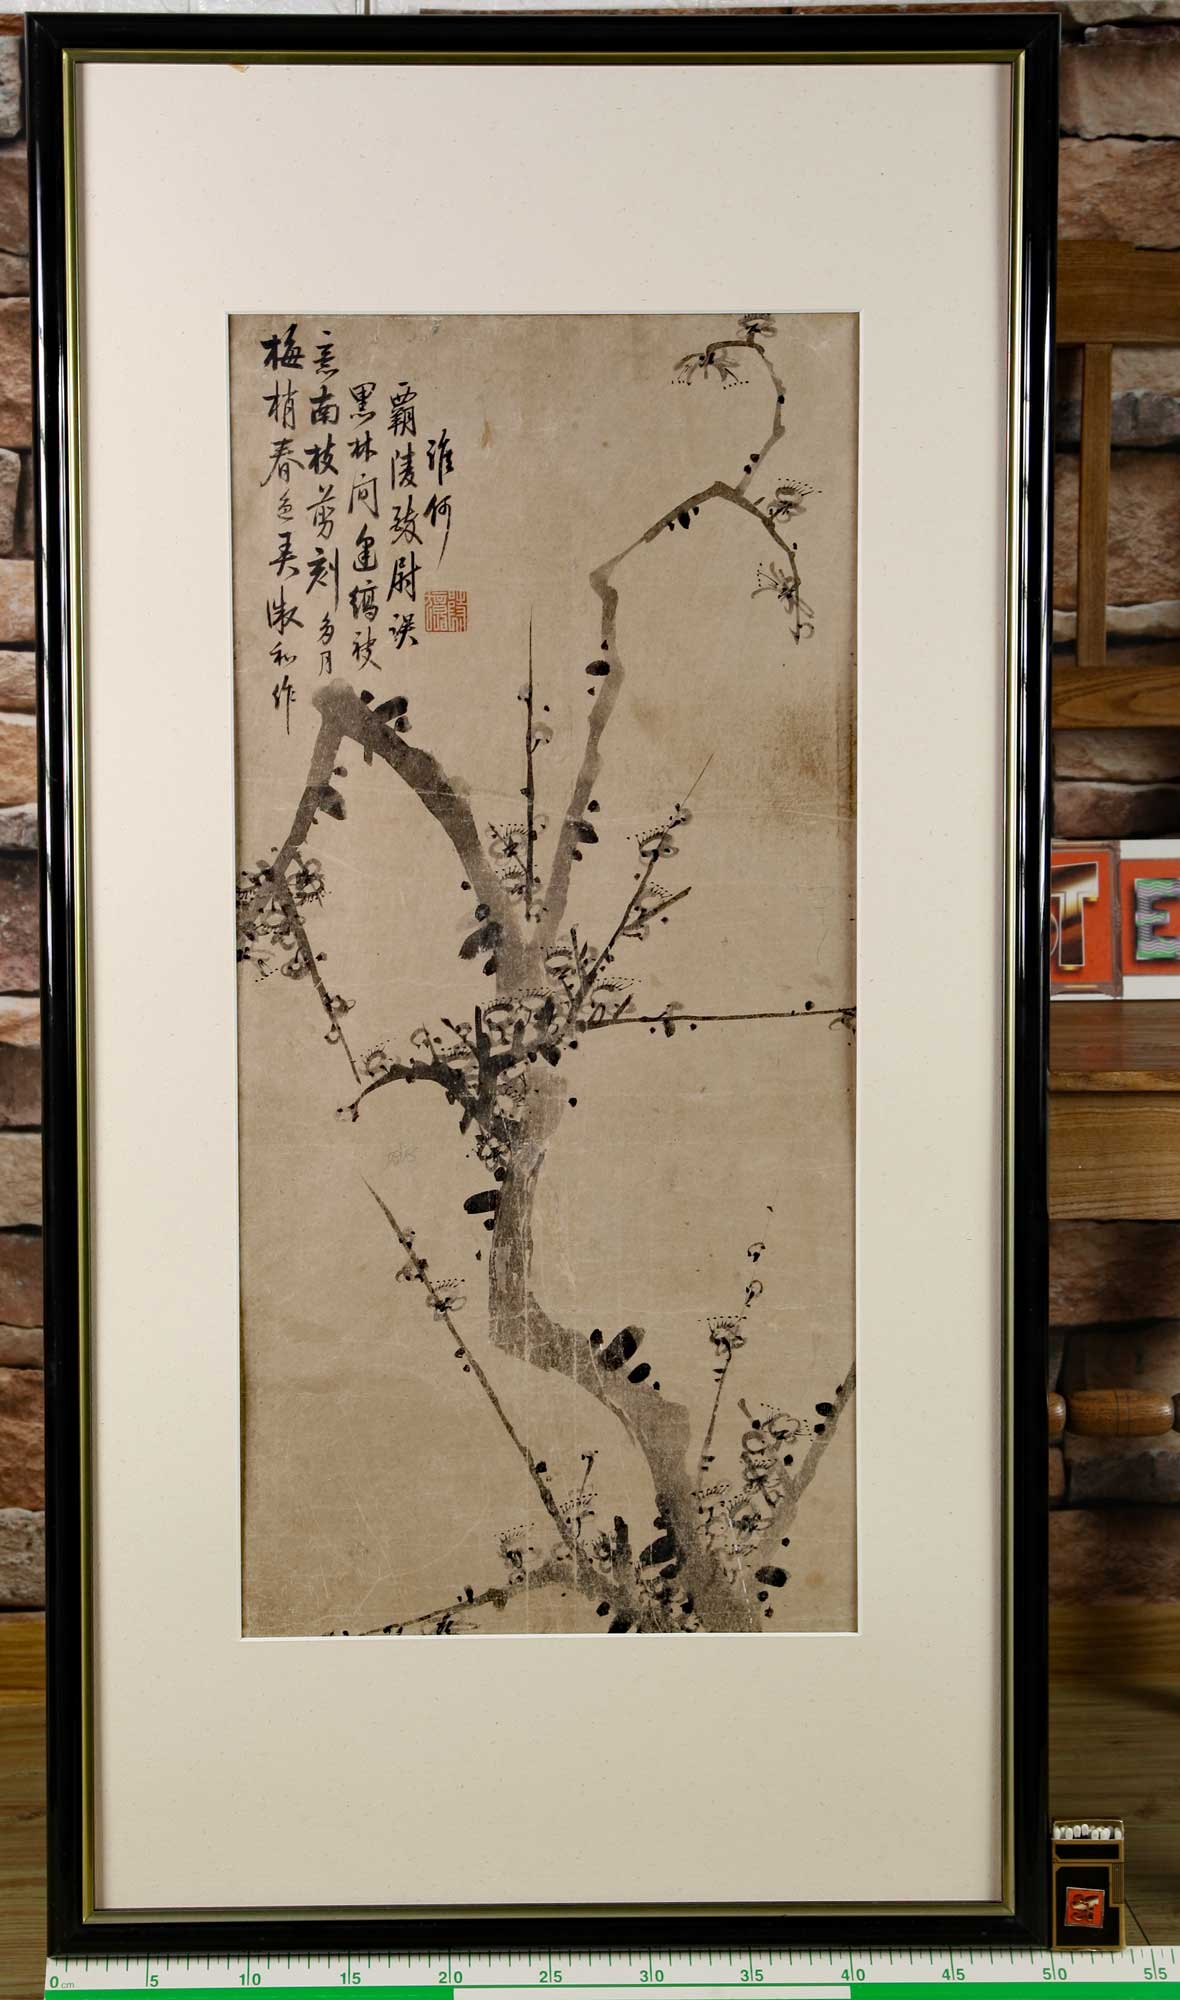 梅梢春色弄微和作
意南枝剪刻多月
黑林間逢縞袂
霸陵醉尉誤
誰何
TE
0 cm 5 10 15 20 25 30 35 40 45 50 55